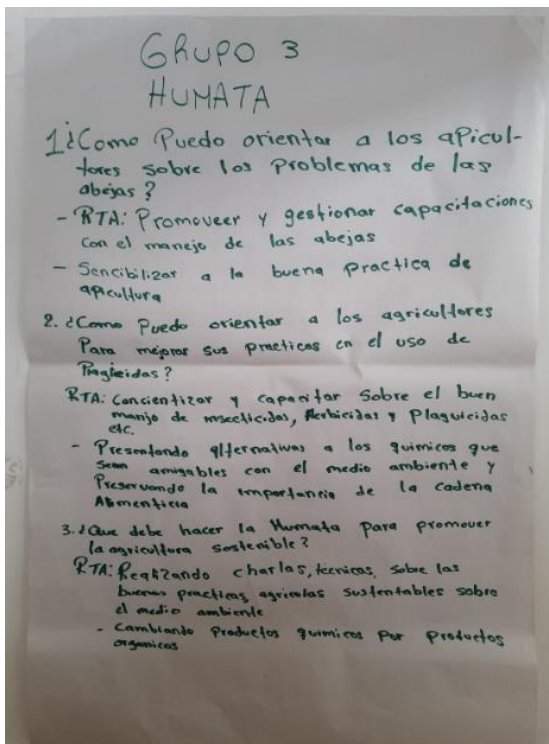 GRUPO 3
HUMATA
1 ¿Como Puedo orientar a los apicul-
tores sobre los problemas de las
abejas?
- RTA: Promoveer y gestionar capacitaciones
con el manejo de las abejas
- Sencibilizar a la buena practica de
apicultura
2. ¿Como Puedo orientar a los agricultores
Para mejorar sus practicas en el uso de
RTA: Concientizar y capacitar Sobre el buen
manjo de insecticidas, Herbicidas y Plaguicidas
etc.
- Presentando alternativas a los quimicos que
sean amigables con el medio ambiente y
Preservando la importancia de la cadena
Alimenticia
3. ¿Que debe hacer la Humata para promover
la agricultura sostenible?
RTA: Realizando charlas, tecnicas, sobre las
buenas practicas agricolas sustentables sobre
el medio ambiente
- Cambiando Productos quimicos por productos
organicos